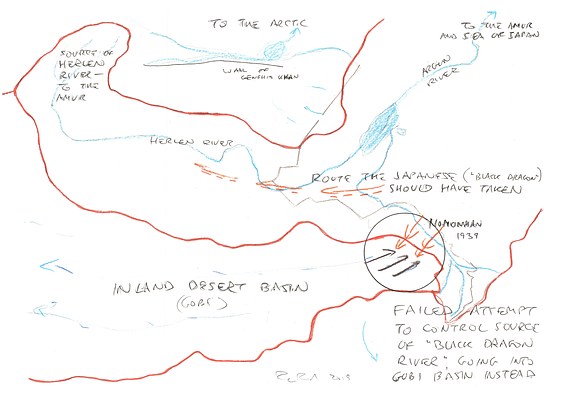 TO THE ARCTIC
TO THE AMUR
AND SEA OF JAPAN
SOURCE OF
HERLEN
RIVER —
TO THE
AMUR
WALL OF
GENGHIS KHAN
ARGUN
RIVER
HERLEN RIVER
ROUTE THE JAPANESE ("BLACK DRAGON")
SHOULD HAVE TAKEN
NOMONHAN
1939
INLAND DESERT BASIN
(GOBI)
FAILED ATTEMPT
TO CONTROL SOURCE
OF "BLACK DRAGON
RIVER", GOING INTO
GOBI BASIN INSTEAD